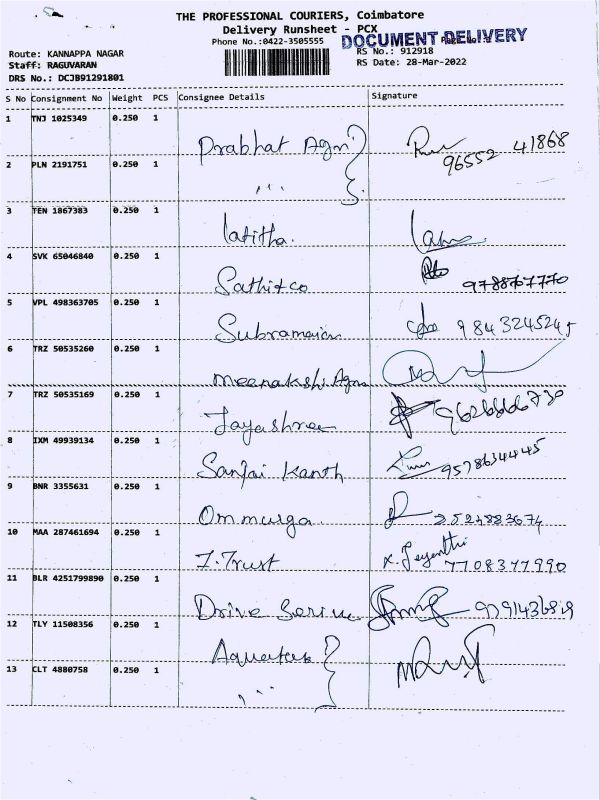 THE PROFESSIONAL COURIERS, Coimbatore
Delivery Runsheet - PCX
Phone No.:0422-3505555
DOCUMENT DELIVERY
Route: KANNAPPA NAGAR
RS No.: 912918
Staff: RAGUVARAN
RS Date: 28-Mar-2022
DRS No.: DCJB91291801
S No Consignment No Weight PCS Consignee Details Signature
1 TNJ 1025349 0.250 1 Prabhat Agn 96552 41868
2 PLN 2191751 0.250 1 ,,,
3 TEN 1867383 0.250 1 lalitha.
4 SVK 65046840 0.250 1 Sathi & co 9788767770
5 VPL 498363705 0.250 1 9843245245
6 TRZ 50535260 0.250 1 Meenakshi Agn
7 TRZ 50535169 0.250 1 Jayashree
8 IXM 49939134 0.250 1 Sanjai Kanth 9578634445
9 BNR 3355631 0.250 1 Om muruga
10 MAA 287461694 0.250 1 I. Trust K. Jeyanthi 7708377990
11 BLR 4251799890 0.250 1 Drive
12 TLY 11508356 0.250 1
13 CLT 4880758 0.250 1 ,,,